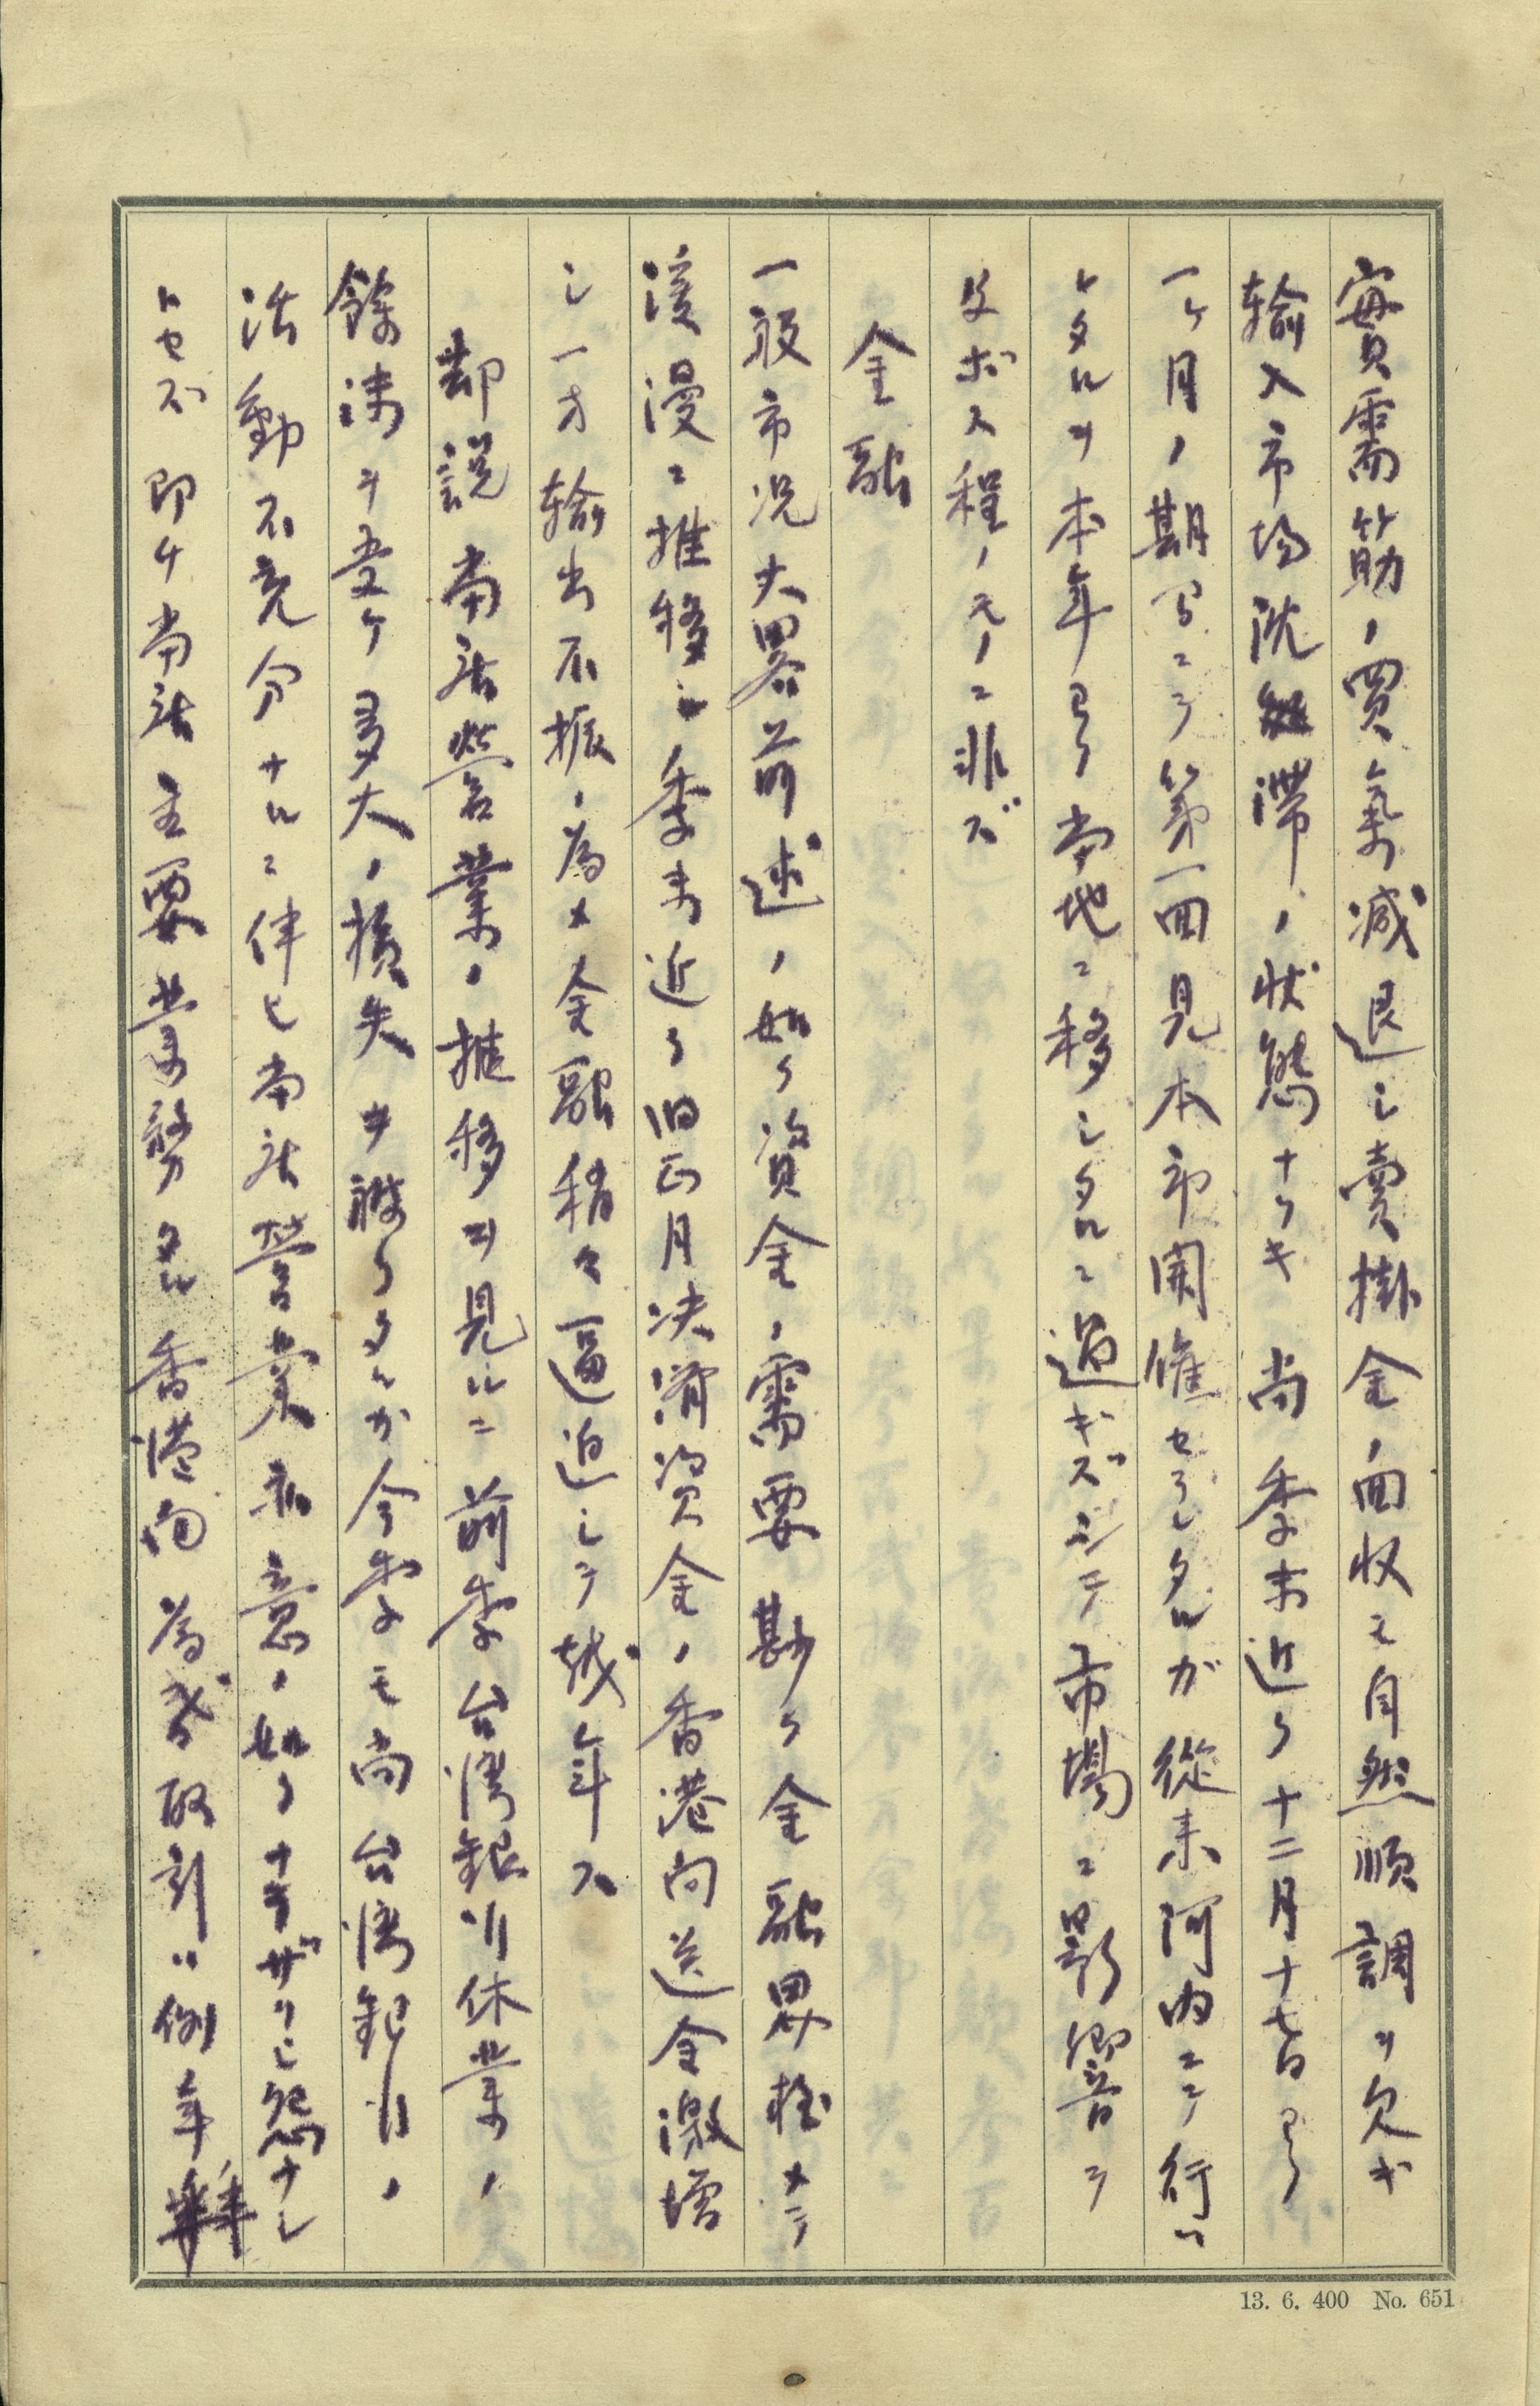 實需筋ノ買氣減退シ賣掛金ノ回収モ自然順調ヲ欠キ
輸入市場沈滞ノ状態ナリキ 尚季末近ク十二月十七日ヨリ
一ケ月ノ期間ニテ第一回見本市開催セラレタルガ從来河内ニテ行ハ
レタルヲ本年ヨリ當地ニ移シタルニ過ギズシテ市場ニ影響ヲ
及ボス程ノモノニ非ズ
金融
一般市况大畧前述ノ如ク資金ノ需要尠ク金融界極メテ
緩漫ニ推移シ季末近ク旧正月决濟資金ノ香港向送金激増
シ一方輸出不振ノ為メ金融稍々逼迫シテ越年ス
却説當店營業ノ推移ヲ見ルニ前季台湾銀行休業ノ
餘沫ヲ受ケ多大ノ損失ヲ蒙リタルガ今季モ尚台湾銀行ノ
活動不充分ナルニ伴ヒ當店營業亦意ノ如クナラザリシ怨ナシ
トセズ 即チ當店主要業務タル香港向為替取引ハ例年
13. 6. 400 No. 651